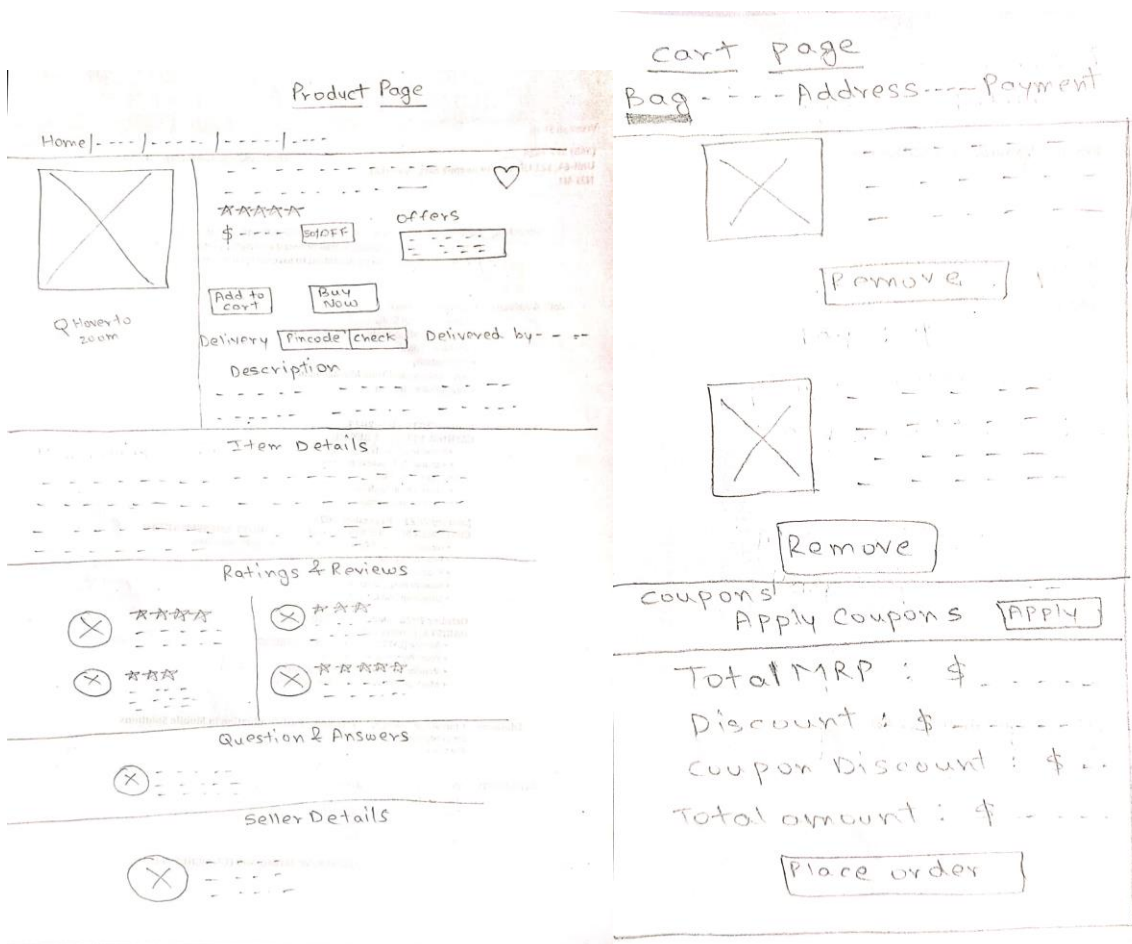 Product Page
Home
offers
$
50% OFF
Add to cart
Buy Now
Hover to zoom
Delivery Pincode check Delivered by
Description
Item Details
Ratings & Reviews
Question & Answers
Seller Details
cart page
Bag - - - - Address - - - - Payment
Remove
Remove
coupons
Apply Coupons Apply
Total MRP : $
Discount : $
Coupon Discount : $
Total amount : $
Place order